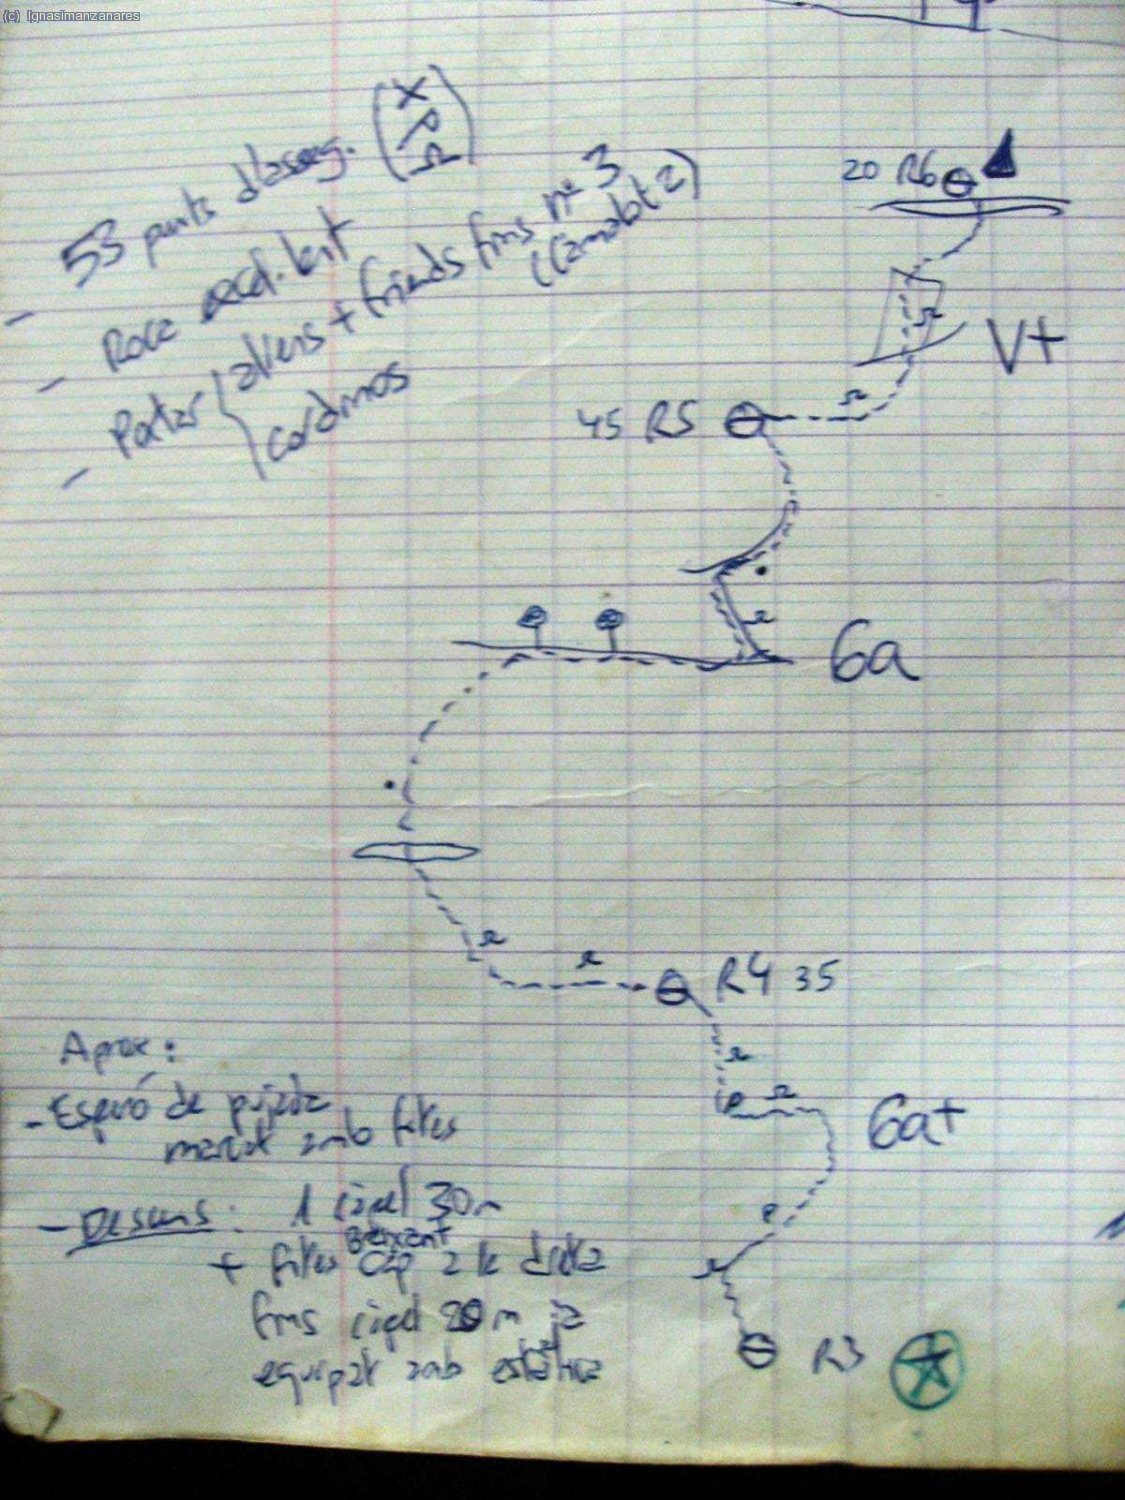 (c) Ignasimanzanares
- 53 punts d'asseg. (X P Ω)
- Roca excel.lent
- Portar { aliens + friends fins nº 3
(camalot 2)
cordinos
20 R6
V+
45 R5
6a
R4 35
6a+
R3
Aprox:
- Esperó de pujada
marcat amb fites
- Descens: 1 ràpel 30 m
+ fites Baixant cap a la dreta
fins ràpel 20 m ja
equipat amb estàtica